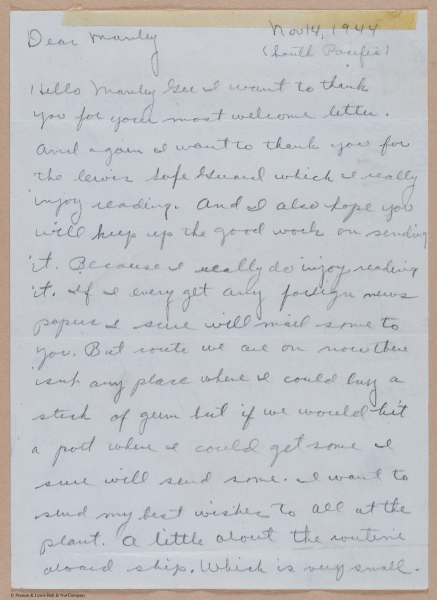 Nov 14, 1944
Dear Manley
(South Pacific)
Hello Manley Gee I want to thank
you for your most welcome letter.
And again I want to thank you for
the lewis Safe Guard which I really
injoy reading. And I also hope you
will keep up the good work on sending
it. Because I really do injoy reading
it. If I every get any foreign news
papers I sure will mail some to
you. But route we are on now there
isnt any place where I could buy a
stick of gum but if we would hit
a port where I could get some I
sure will send some. I want to
send my best wishes to all at the
plant. A little about the routine
aboard ship. Which is very small.
© Penson & Lewis Bolt & Nut Company